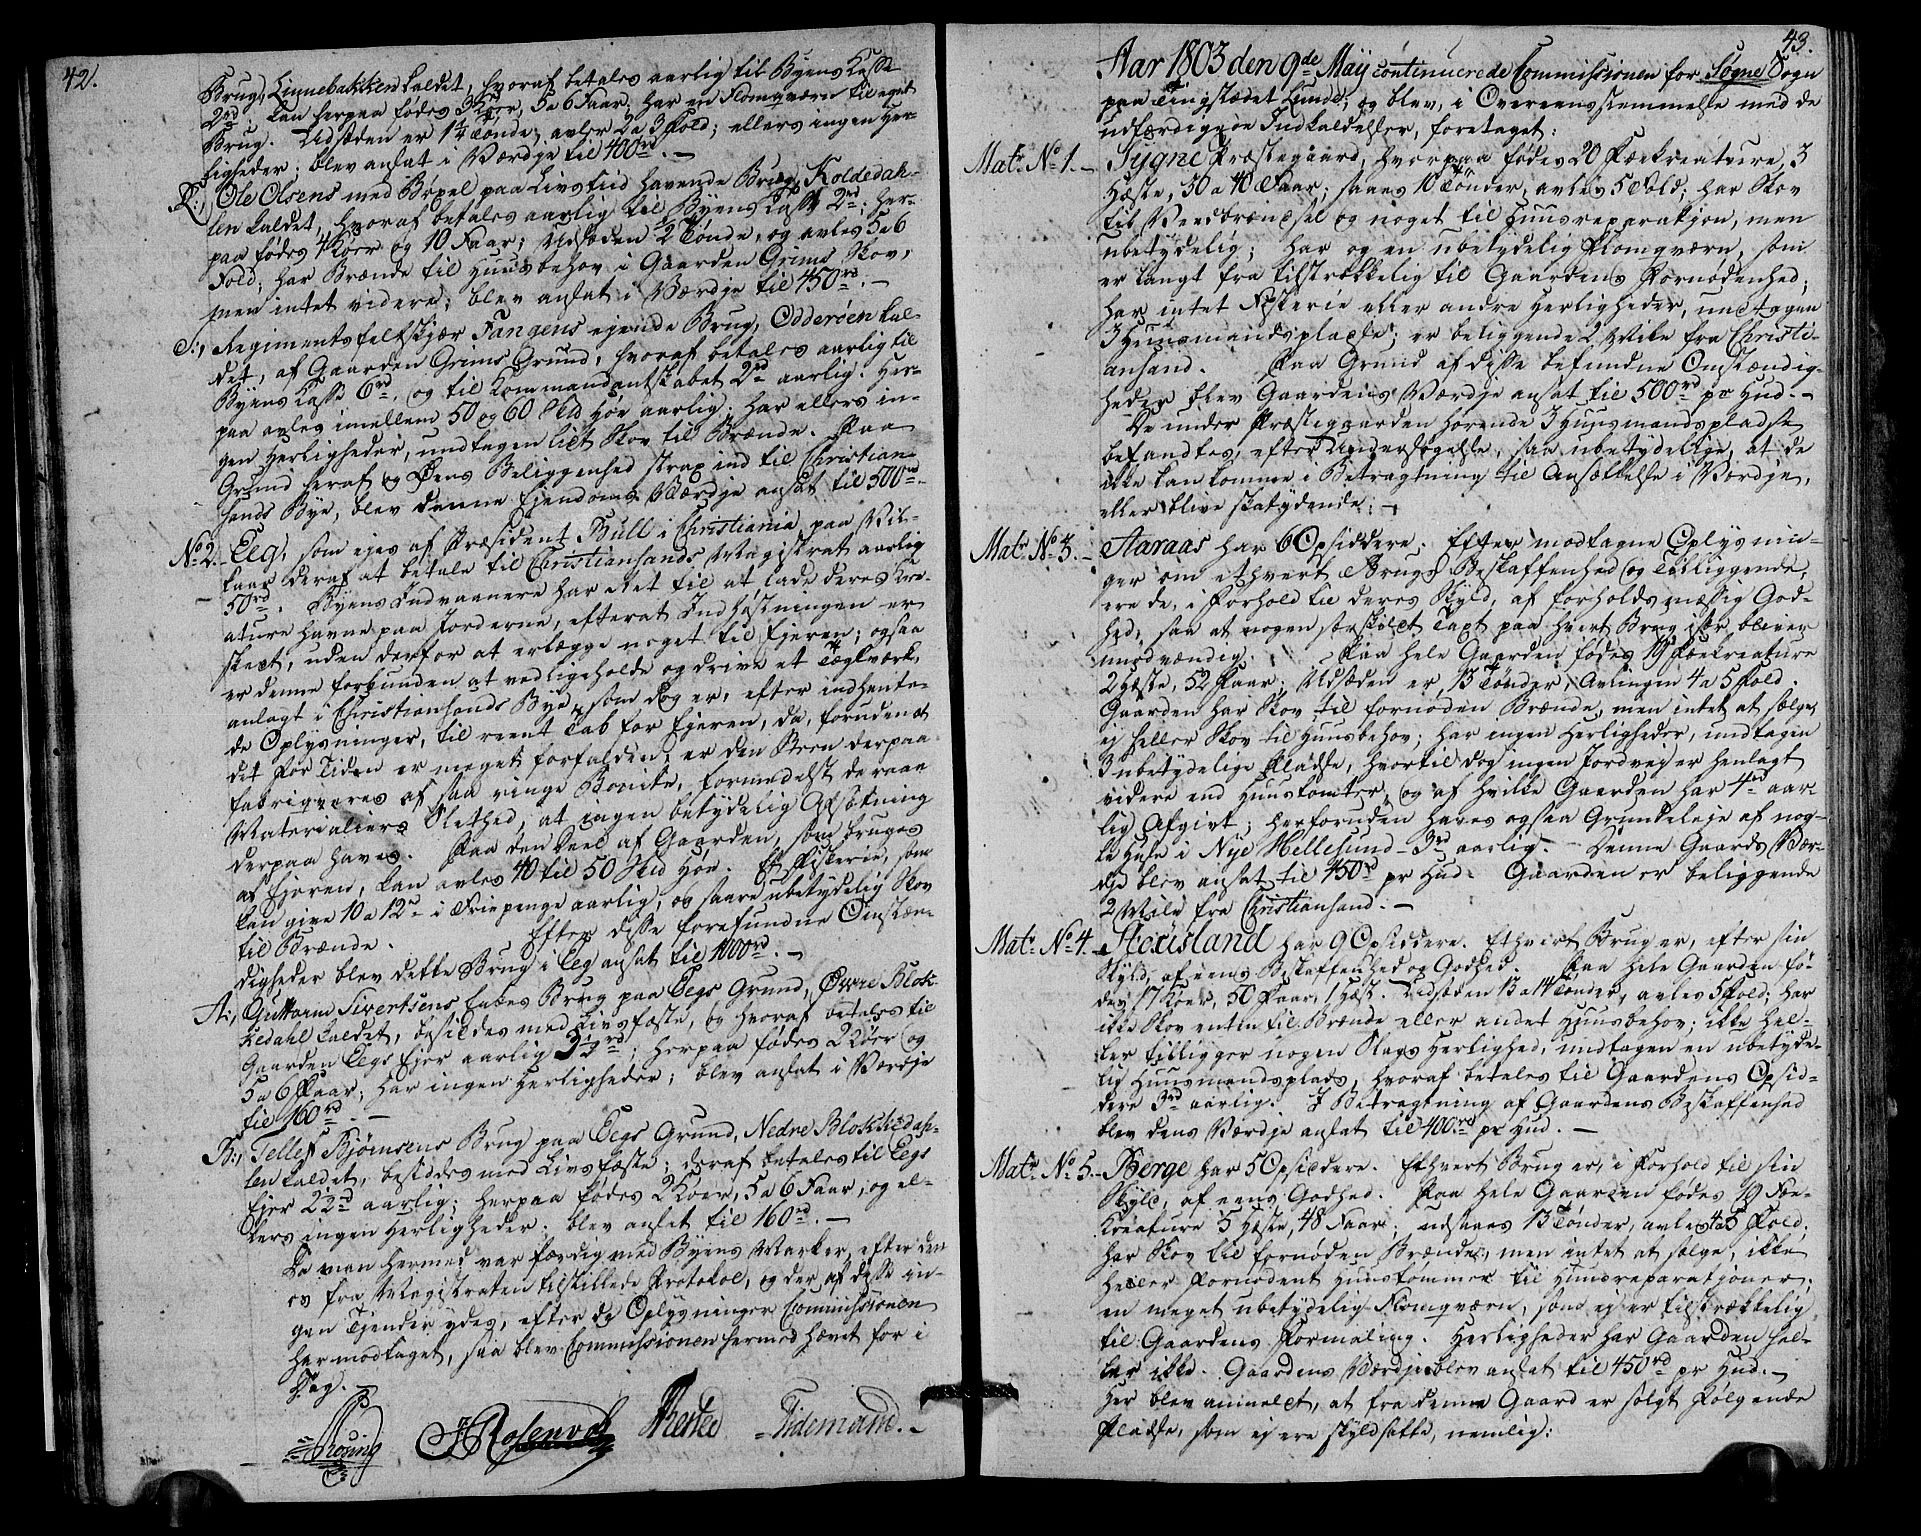 42.
Brug, Linnebakken kaldet, hvoraf betales aarlig til Byens Kasse
2rd. Kan herpaa fødes 3 Køer, 5 a 6 Faar, har en Flomqværn til eget
Brug. Udsæden er 1¼ Tønde, avler 2 a 3 Fold; ellers ingen Her-
ligheder; blev ansat i Værdje til 400rd. -
R:, Ole Olsens med Bopel paa Livstiid havende Brug, Koldedah-
len kaldet, hvoraf betales aarlig til Byens Kasse 2rd; her-
paa fødes 4 Køer og 10 Faar; Udsæden 2 Tønde, og avles 5 a 6
Fold; har Brænde til Huusbehov i Gaarden Grims Skov,
men intet videre; blev ansat i Værdje til 450rd. -
S:, Regimentsfeltskjær Fangens ejende Brug, Odderøen kal-
det, af Gaarden Grims Grund, hvoraf betales aarlig til
Byens Kasse 6rd, og til Kommandantskabet 2rd aarlig. Her-
paa avles imellem 50 og 60 Skd Høe aarlig; har ellers in-
gen Herligheder, undtagen lidt Skov til Brænde. Paa
Grund heraf og Øens Beliggenhed strax ind til Christian-
sands Bye, blev denne Ejendoms Værdje ansat til 500rd. -
No 2. - Eeg, som ejes af Præsident Bull i Christiania, paa Vil-
kaar deraf at betale til Christiansands Magistrat aarlig
50rd. Byens Indvaanere har Ret til at lade deres Kre-
ature havne paa Jorderne, efterat Indhøstningen er
skeet, uden derfor at erlægge noget til Ejeren; ogsaa
er denne forbunden at vedligeholde og drive et Teglværk,
anlagt i Christiansands Bye, som dog er, efter indhente-
de Oplysninger, til reent Tab for Ejeren, da, foruden at
det for Tiden er meget forfalden, er den Steen derpaa
fabriqveres af saa ringe Bonite, formedelst de raae
Materialiers Slethed, at ingen betydelig Afsætning
derpaa haves. Paa den Deel af Gaarden, som bruges
af Ejeren, kan avles 40 til 50 Skd Høe. Et Fisterie, som
kan give 10 a 12rd i Friepenge aarlig, og saare ubetydelig Skov
til Brænde. Efter disse forefundne Omstæn-
digheder blev dette Brug i Eeg ansat til 1000rd. -
A:, Guttorm Sivertsens fabes Brug paa Eegs Grund, Øvre Blok-
kedahl kaldet, besiddes med Livsfæste, og hvoraf betales til
Gaarden Eegs Ejer aarlig 3½rd; herpaa fødes 2 Køer og
5 a 6 Faar; har ingen Herligheder; blev ansat i Værdje
til 160rd. -
B:, Tellef Bjørnsens Brug paa Eegs Grund, Nedre Blokkedah-
len kaldet, besiddes med Livsfæste; deraf betales til Eegs
Ejer 2½rd aarlig; herpaa fødes 2 Køer, 5 a 6 Faar, og el-
lers ingen Herligheder. blev ansat til 160rd. -
Da man hermed var færdig med Byens Marker, efter den
os fra Magistraten tilstillede Protokol, og der af disse in-
gen Tjender ydes, efter de Oplysninger Commissionen
har modtaget, saa blev Commissionen hermed hævet for i
Dag.
Rosenvold Tidemand. -
43.
Aar 1803 den 9de Maij continuerede Commissionen for Søgne Sogn
paa Tingstædet Lunde, og blev, i Overeensstemmelse med de
udfærdigede Indkaldelser, foretaget:
Matr. No 1. - Sygne Præstegaard, hvorpaa fødes 20 Fæekreature, 3
Hæste, 30 a 40 Faar; saaes 10 Tønder, avles 5 Fold; har Skov
til Veedbrændsel og noget til Huusreparation, men
ubetydelig; har og en ubetydelig Flomqværn, som
er langt fra tilstrækkelig til Gaardens Fornødenhed;
har intet Fisterie eller andre Herligheder, undtagen
3 Huusmandspladse; er beliggende 2 Mile fra Christi-
ansand. Paa Grund af disse befundne Omstændig-
heder blev Gaardens Værdje ansat til 500rd pr Hud. -
De under Præstegaarden hørende 3 Huusmandspladse
befandtes, efter Undersøgelse, saa ubetydelige, at de
ikke kan komme i Betragtning til Ansættelse i Værdje,
eller blive skatydende. -
Matr. No 3. - Aaraas har 6 Opsiddere. Efter modtagne Oplysnin-
ger om ethvert Brugs Beskaffenhed og Tilliggende,
ere de, i Forhold til deres Skyld, af forholdsmæssig God-
hed, saa at nogen særskildt Taxt paa hvert Brug især bliver
unødvændig. Paa hele Gaarden fødes 19 Fæekreature
2 Hæste, 52 Faar. Udsæden er 13 Tønder, Avlingen 4 a 5 Fold.
Gaarden har Skov til fornøden Brænde, men intet at sælge,
ej heller Skov til Huusbehov; har ingen Herligheder, undtagen
3 ubetydelige Pladse, hvortil dog ingen Jordvej er henlagt
videre end Huustomter, og af hvilke Gaarden har 4rd aar-
lig Afgivt; herforuden haves ogsaa Grundeleje af nog-
le Huse i Nye Hellesund - 3rd aarlig. - Denne Gaards Vær-
dje blev ansat til 450rd pr Hud. Gaarden er beliggende
2 Mile fra Christiansand. -
Matr. No 4. - Steensland har 9 Opsiddere. Ethvert Brug er, efter sin
Skyld, af eens Beskaffenhed og Godhed. Paa hele Gaarden fø-
des 17 Køer, 50 Faar, 1 Hæst. Udsæden 13 a 14 Tønder, avles 5 Fold; har
ikke Skov enten til Brænde eller andet Huusbehov; ikke hel-
ler tilligger nogen Slags Herlighed, undtagen en ubetyde-
lig Huusmandsplads, hvoraf betales til Gaardens Opsid-
dere 3rd aarlig. I Betragtning af Gaardens Beskaffenhed
blev dens Værdje ansat til 400rd pr Hud. -
Matr. No 5. - Berge har 5 Opsiddere. Ethvert Brug er, i Forhold til sin
Skyld, af eens Godhed. Paa hele Gaarden fødes 19 Fæe-
Kreature 5 Hæste, 48 Faar; udsaaes 13 Tønder, avles 4 a 5 Fold,
har Skov til fornøden Brænde, men intet at sælge, ikke
heller fornødent Huustømmer til Huusreparationer;
en meget ubetydelig Flomqværn, som ej er tilstrækkelig
til Gaardens Formaling. Herligheder har Gaarden hel-
ler ikke. Gaardens Værdje blev ansat til 450rd pr Hud. -
Her blev anmeldt, at fra denne Gaard er solgt følgende
Pladse, som ej ere skyldsatte, nemlig: